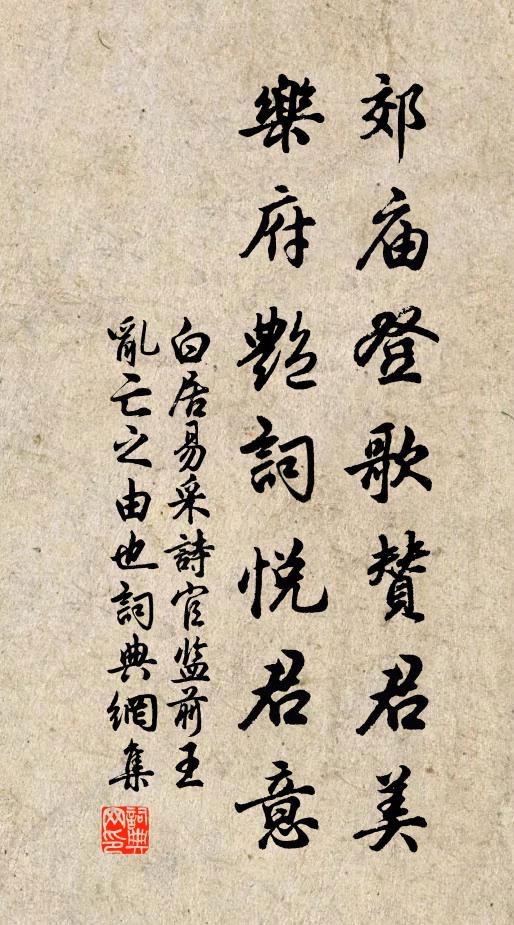 郊庙登歌赞君美
樂府艷詞悦君意
白居易采詩官监前王
亂亡之由也詞典網集
詞典网印